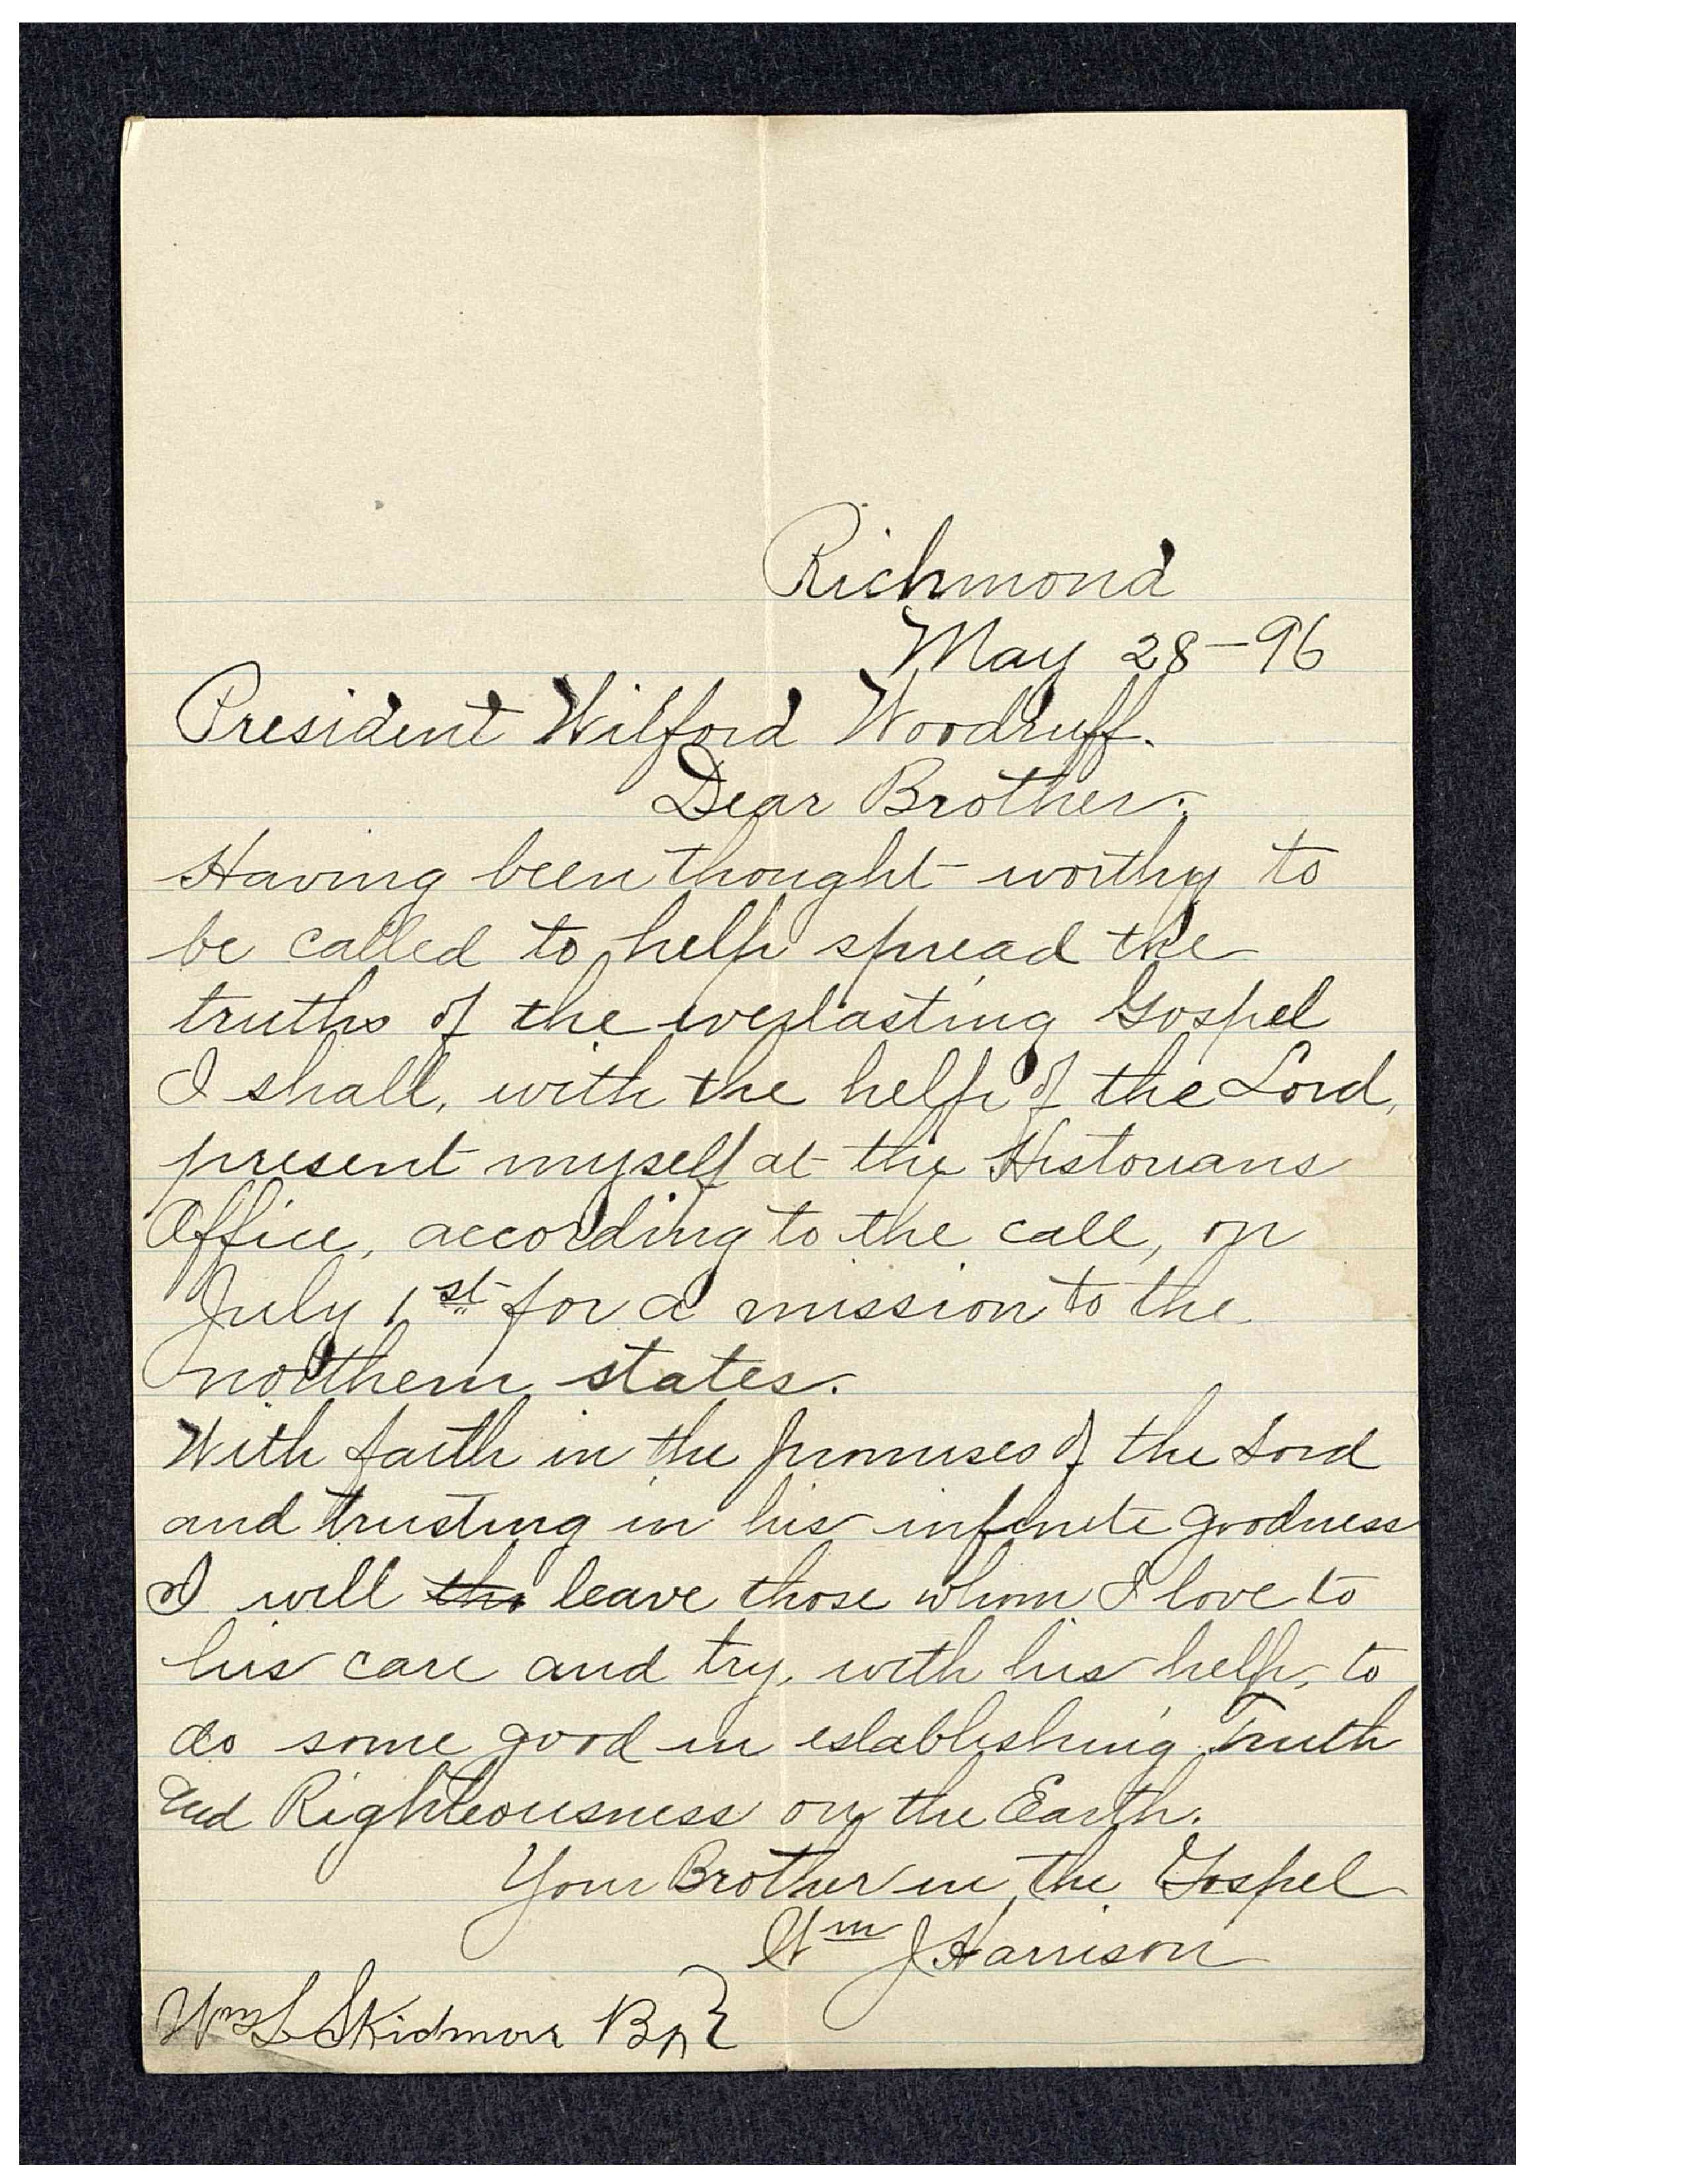 Richmond
May 28-96
President Wilford Woodruff.
Dear Brother:
Having been thought worthy to
be called to help spread the
truths of the everlasting Gospel
I shall, with the help of the Lord,
present myself at the Historians
Office, according to the call, on
July 1st for a mission to the
northern states.
With faith in the promises of the Lord
and trusting in his infinite goodness
I will tho leave those whom I love to
his care and try, with his help, to
do some good in establishing Truth
and Righteousness on the Earth.
Your Brother in the Gospel
Wm J Harrison
Wm L Skidmore Bp